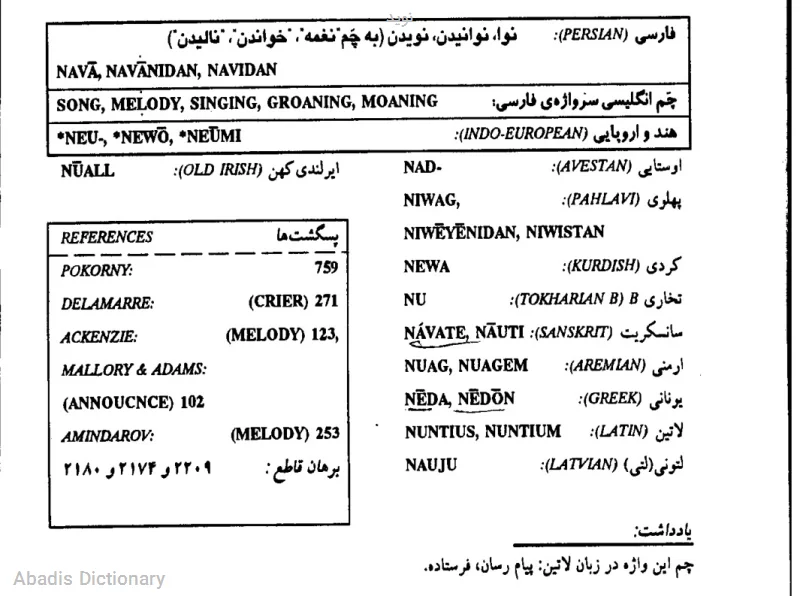 نوید
فارسی (PERSIAN): نوا، نوانیدن، نویدن (به چَم "نغمه"، "خواندن"، "نالیدن")
NAVĀ, NAVĀNIDAN, NAVIDAN
چَم انگلیسی سرواژه‌ی فارسی:
SONG, MELODY, SINGING, GROANING, MOANING
هند و اروپایی (INDO-EUROPEAN): *NEU-, *NEWŌ, *NEŪMI
اوستایی (AVESTAN): NAD-
پهلوی (PAHLAVI): NIWAG,
NIWĒYĒNIDAN, NIWISTAN
کردی (KURDISH): NEWA
تخاری B (TOKHARIAN B): NU
سانسکریت (SANSKRIT): NÁVATE, NĀUTI
ارمنی (AREMIAN): NUAG, NUAGEM
یونانی (GREEK): NĒDA, NĒDŌN
لاتین (LATIN): NUNTIUS, NUNTIUM
لتونی(لتی) (LATVIAN): NAUJU
ایرلندی کهن (OLD IRISH): NŪALL
REFERENCES پسگشت‌ها
POKORNY: 759
DELAMARRE: (CRIER) 271
ACKENZIE: (MELODY) 123,
MALLORY & ADAMS:
(ANNOUCNCE) 102
AMINDAROV: (MELODY) 253
برهان قاطع: ۲۲۰۹ و ۲۱۷۴ و ۲۱۸۰
یادداشت:
چم این واژه در زبان لاتین: پیام رسان، فرستاده.
Abadis Dictionary